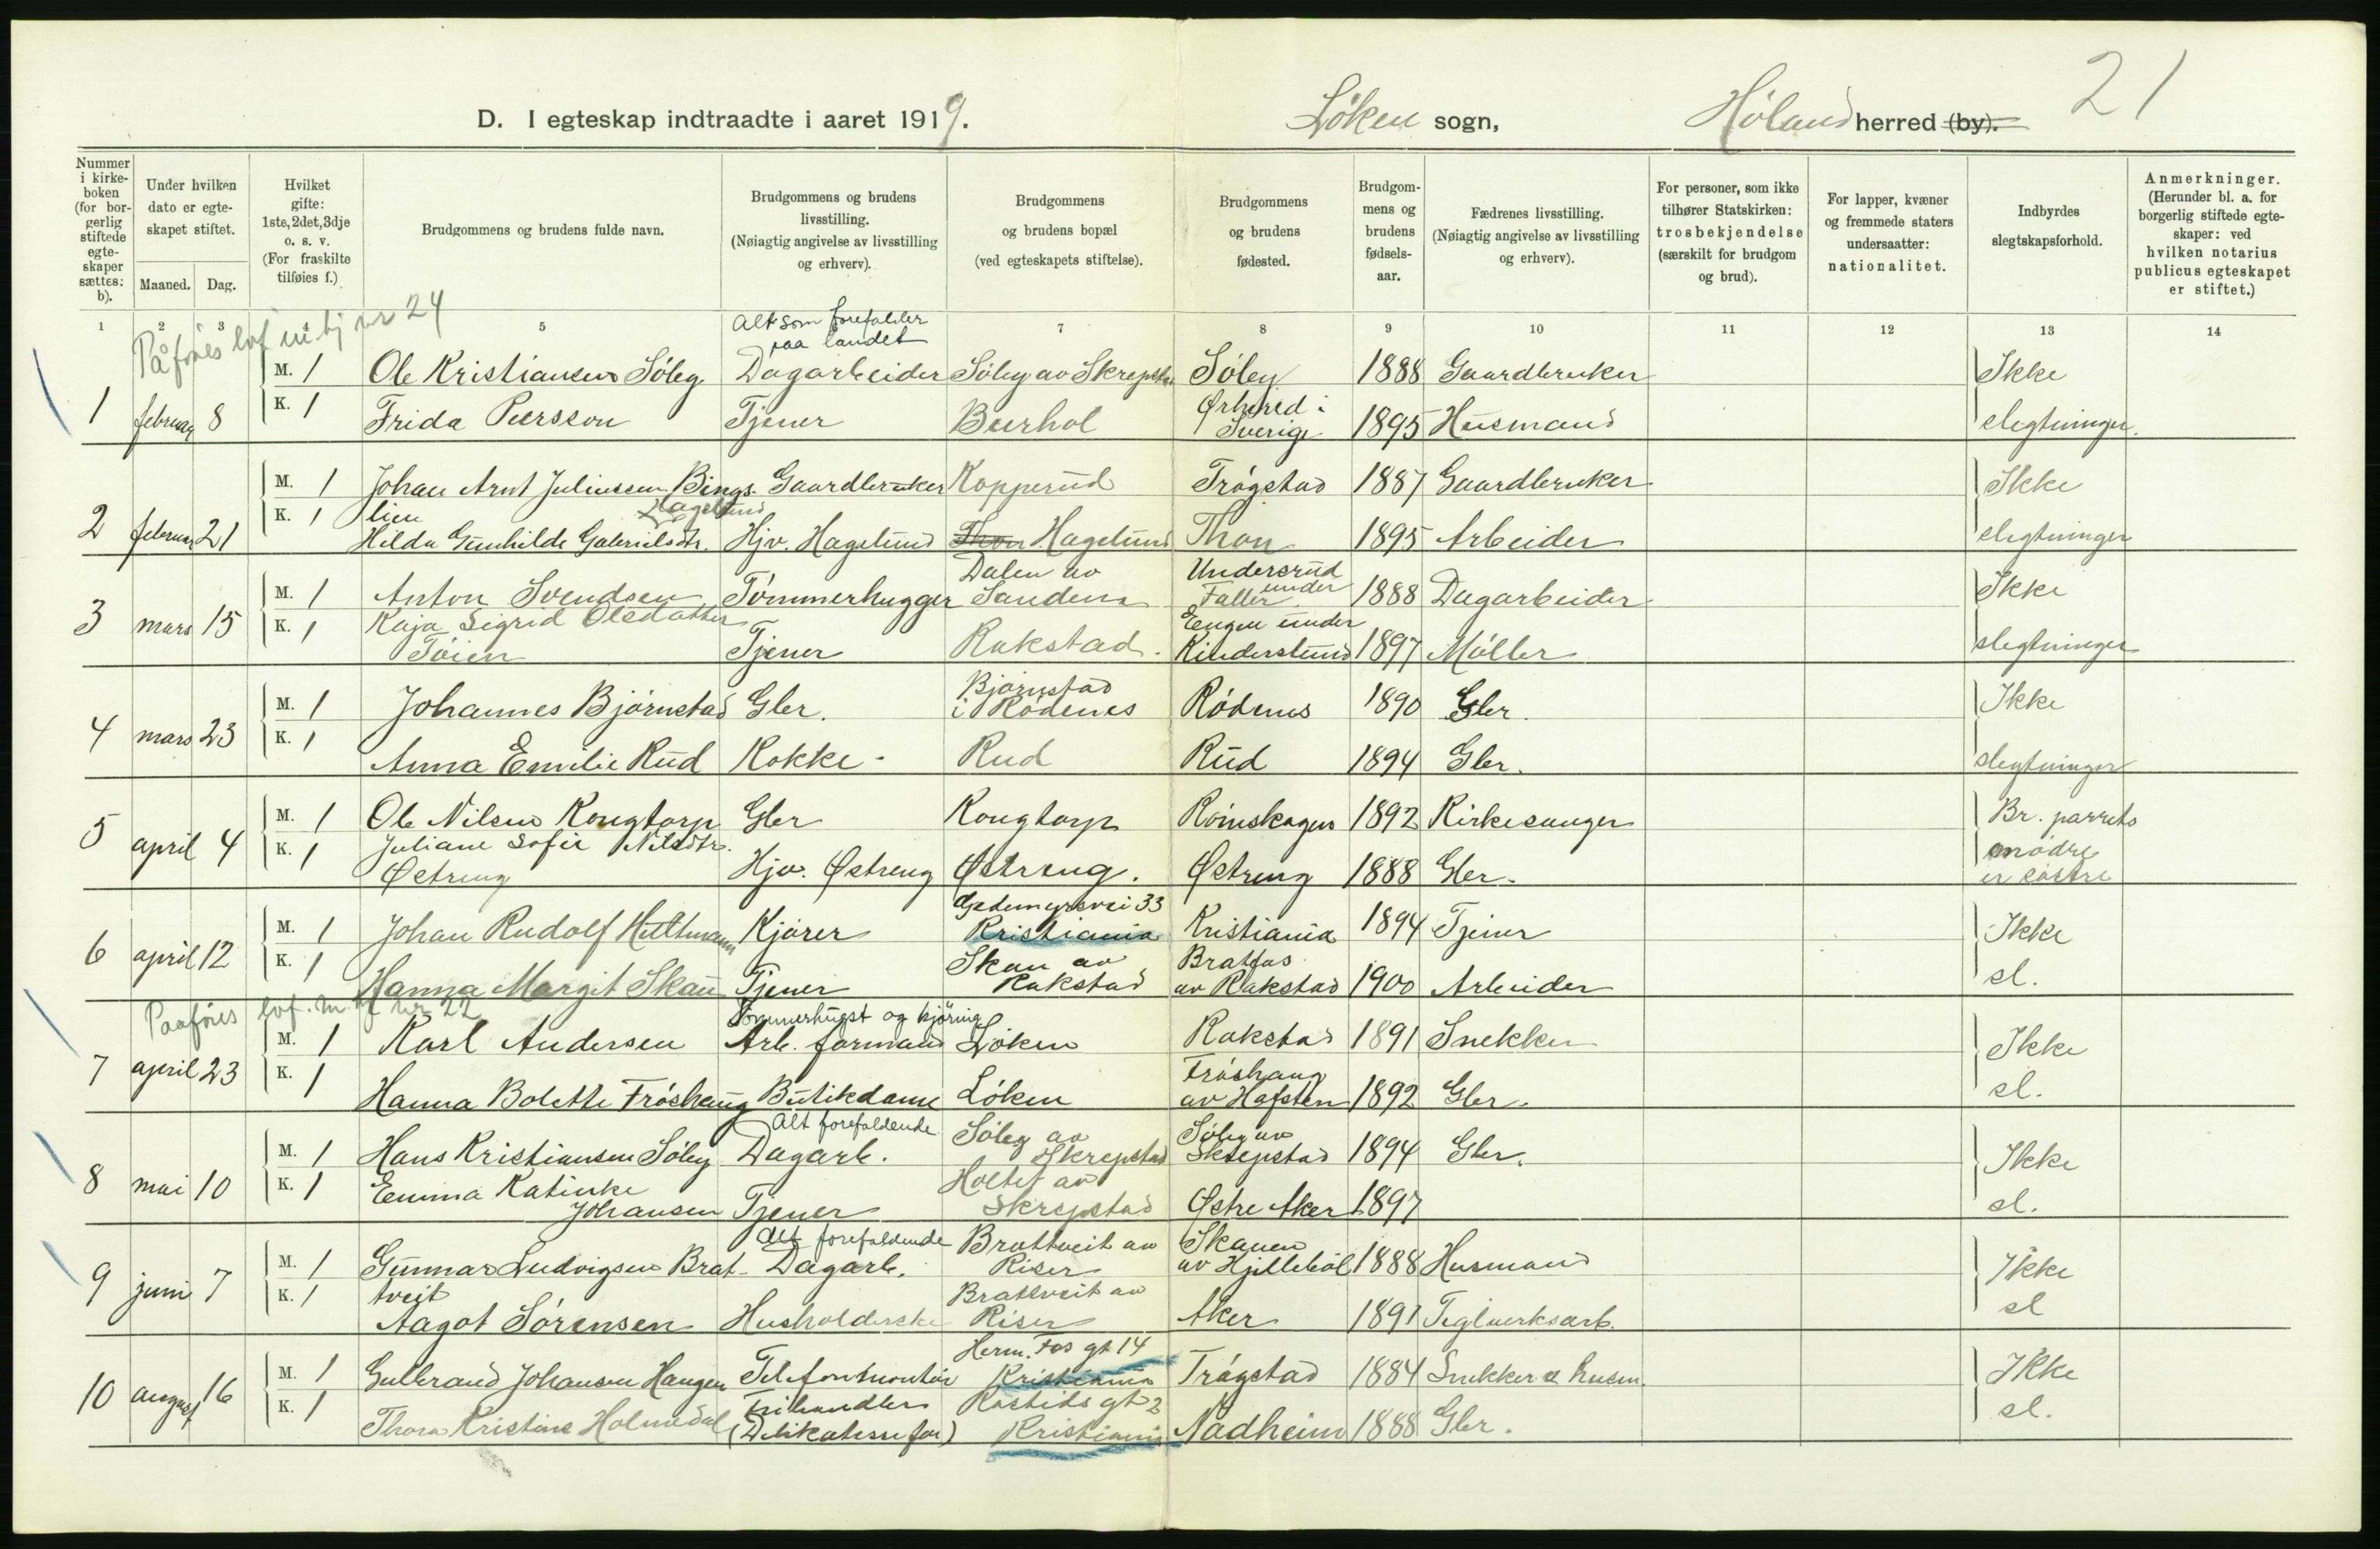 21
D. I egteskap indtraadte i aaret 1919. Løken sogn, Høland herred (by).
Nummer i kirkeboken (for borgerlig stiftede egteskaper sættes: b).
Under hvilken dato er egteskapet stiftet.
Maaned. Dag.
Hvilket gifte: 1ste, 2det, 3dje o. s. v. (For fraskilte tilføies f.)
Brudgommens og brudens fulde navn.
Brudgommens og brudens livsstilling. (Nøiagtig angivelse av livsstilling og erhverv).
Brudgommens og brudens bopæl (ved egteskapets stiftelse).
Brudgommens og brudens fødested.
Brudgommens og brudens fødselsaar.
Fædrenes livsstilling. (Nøiagtig angivelse av livsstilling og erhverv).
For personer, som ikke tilhører Statskirken: trosbekjendelse (særskilt for brudgom og brud).
For lapper, kvæner og fremmede staters undersaatter: nationalitet.
Indbyrdes slegtskapsforhold.
Anmerkninger. (Herunder bl. a. for borgerlig stiftede egteskaper: ved hvilken notarius publicus egteskapet er stiftet.)
1 2 3 4 5 7 8 9 10 11 12 13 14
Påføres lof nr 24
Alt som forefalder paa landet
1 februar 8 M. 1 Ole Kristiansen Søley Dagarbeider Søley av Skrepstad Søley 1888 Gaardbruker Ikke
K. 1 Frida Persson Tjener Beerhol Ørhered i Sverige 1895 Husmand slegtninger.
2 februar 21 M. 1 Johan Arnt Juliussen Bingslien Gaardbruker Kopperud Trøgstad 1887 Gaardbruker Ikke
Hagelund
K. 1 Hilda Gunhilde Gabrielsdtr. Hjv. Hagelund Thon Hagelund Thon 1895 Arbeider slegtninger
3 mars 15 M. 1 Anton Svendsen Tømmerhugger Dalen av Sandem Undersrud under Faller 1888 Dagarbeider Ikke
K. 1 Kaja Sigrid Olsdatter Tøien Tjener Rakstad. Engen under Kinderslund 1897 Møller slegtninger
4 mars 23 M. 1 Johannes Bjørnstad Gbr. Bjørnstad i Rødenes Rødenes 1890 Gbr. Ikke
K. 1 Anna Emilie Rud Kokke - Rud Rud 1894 Gbr. slegtninger
5 april 4 M. 1 Ole Nilsen Kongtorp Gbr Kongtorp Rømskogen 1892 Kirkesanger Br. parrets
K. 1 Juliane Sofie Nilsdtr. Østreng Hjv. Østreng Østreng. Østreng 1888 Gbr. mødre er søstre
6 april 12 M. 1 Johan Rudolf Hultmann Kjører 33 Kristiania Kristiania 1894 Tjener Ikke
K. 1 Hanna Margit Skau Tjener Skau av Rakstad Bratfos av Rakstad 1900 Arbeider sl.
Paaføres lof. nr 22
Tømmerhugst og kjøring
7 april 23 M. 1 Karl Andersen Arb. formand Løken Rakstad 1891 Snekker Ikke
K. 1 Hanna Bolette Frøshaug Butikdame Løken Frøshaug av Hafsten 1892 Gbr. sl.
Alt forefaldende
8 mai 10 M. 1 Hans Kristiansen Søley Dagarb. Søley av Skrepstad Søley av Skrepstad 1894 Gbr. Ikke
K. 1 Emma Katinka Johansen Tjener Holtet av Skrepstad Østre Aker 1897 sl.
Alt forefaldende
9 juni 7 M. 1 Gunnar Ludvigsen Brattveit Dagarb. Brattveit av Riser Skauen av Hjellebøl 1888 Husmand Ikke
K. 1 Aagot Sørensen Husholderske Bratveit av Riser Aker 1891 Teglverksarb. sl
10 august 16 M. 1 Gulbrand Johansen Haugen Telefonmontør Herm. Fos gt 14 Kristiania Trøgstad 1884 Snekker & husm. Ikke
K. 1 Thora Kristine Holmedal Frihandler (Delikatesse for) gt 2 Kristiania Nadheim 1888 Gbr. sl.